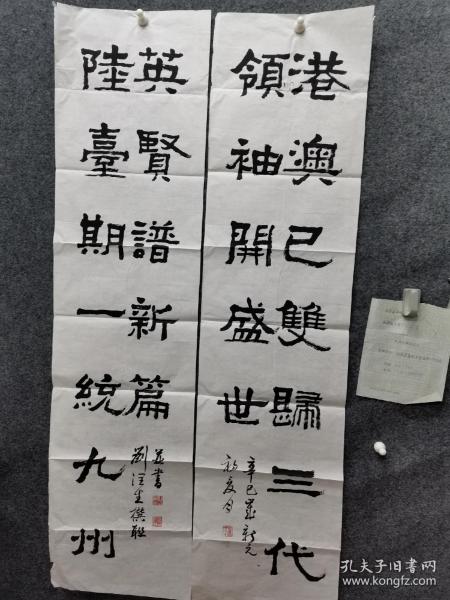 港澳已雙歸三代
領袖開盛世
辛巳歲新元
英賢譜新篇
陸臺期一統九州
並書
劉
撰聯
孔夫子旧书网
www.kongfz.com